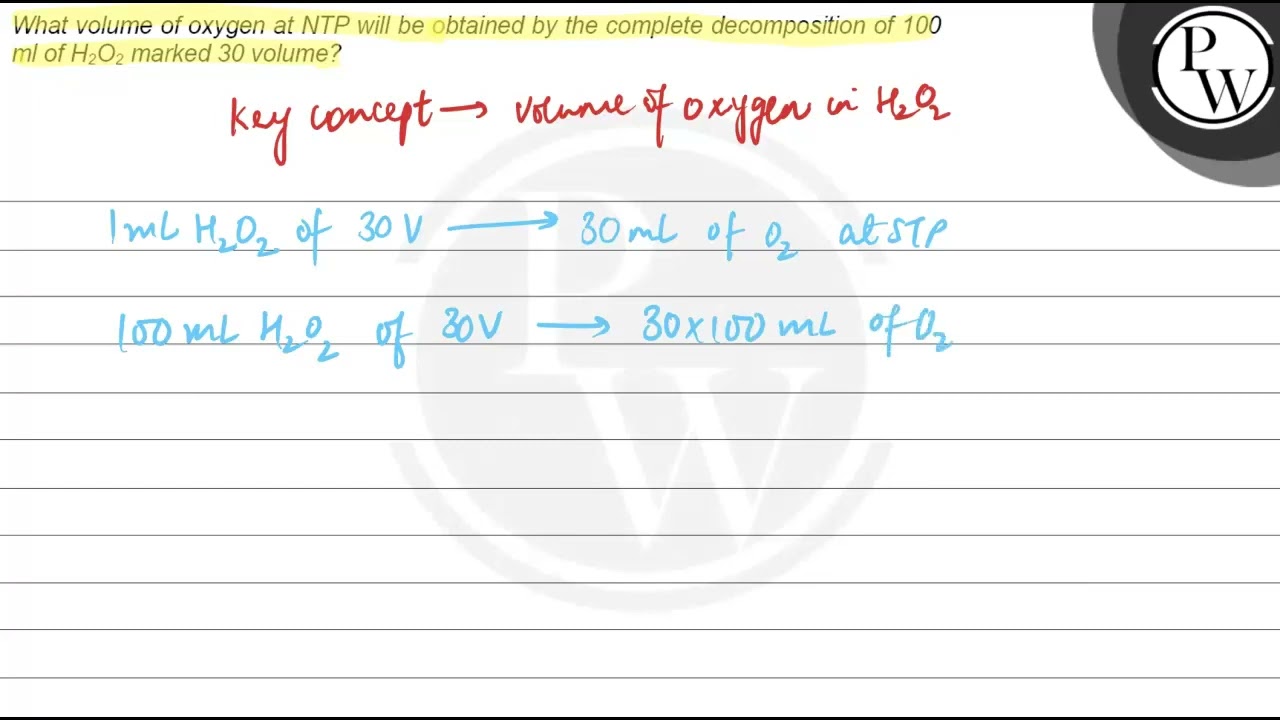 What volume of oxygen at NTP will be obtained by the complete decomposition of 100
ml of H₂O₂ marked 30 volume?
P
W
Key concept → volume of oxygen in H₂O₂
1mL H₂O₂ of 30 V → 30 mL of O₂ at STP
100 mL H₂O₂ of 30V → 30×100 mL of O₂
P
W